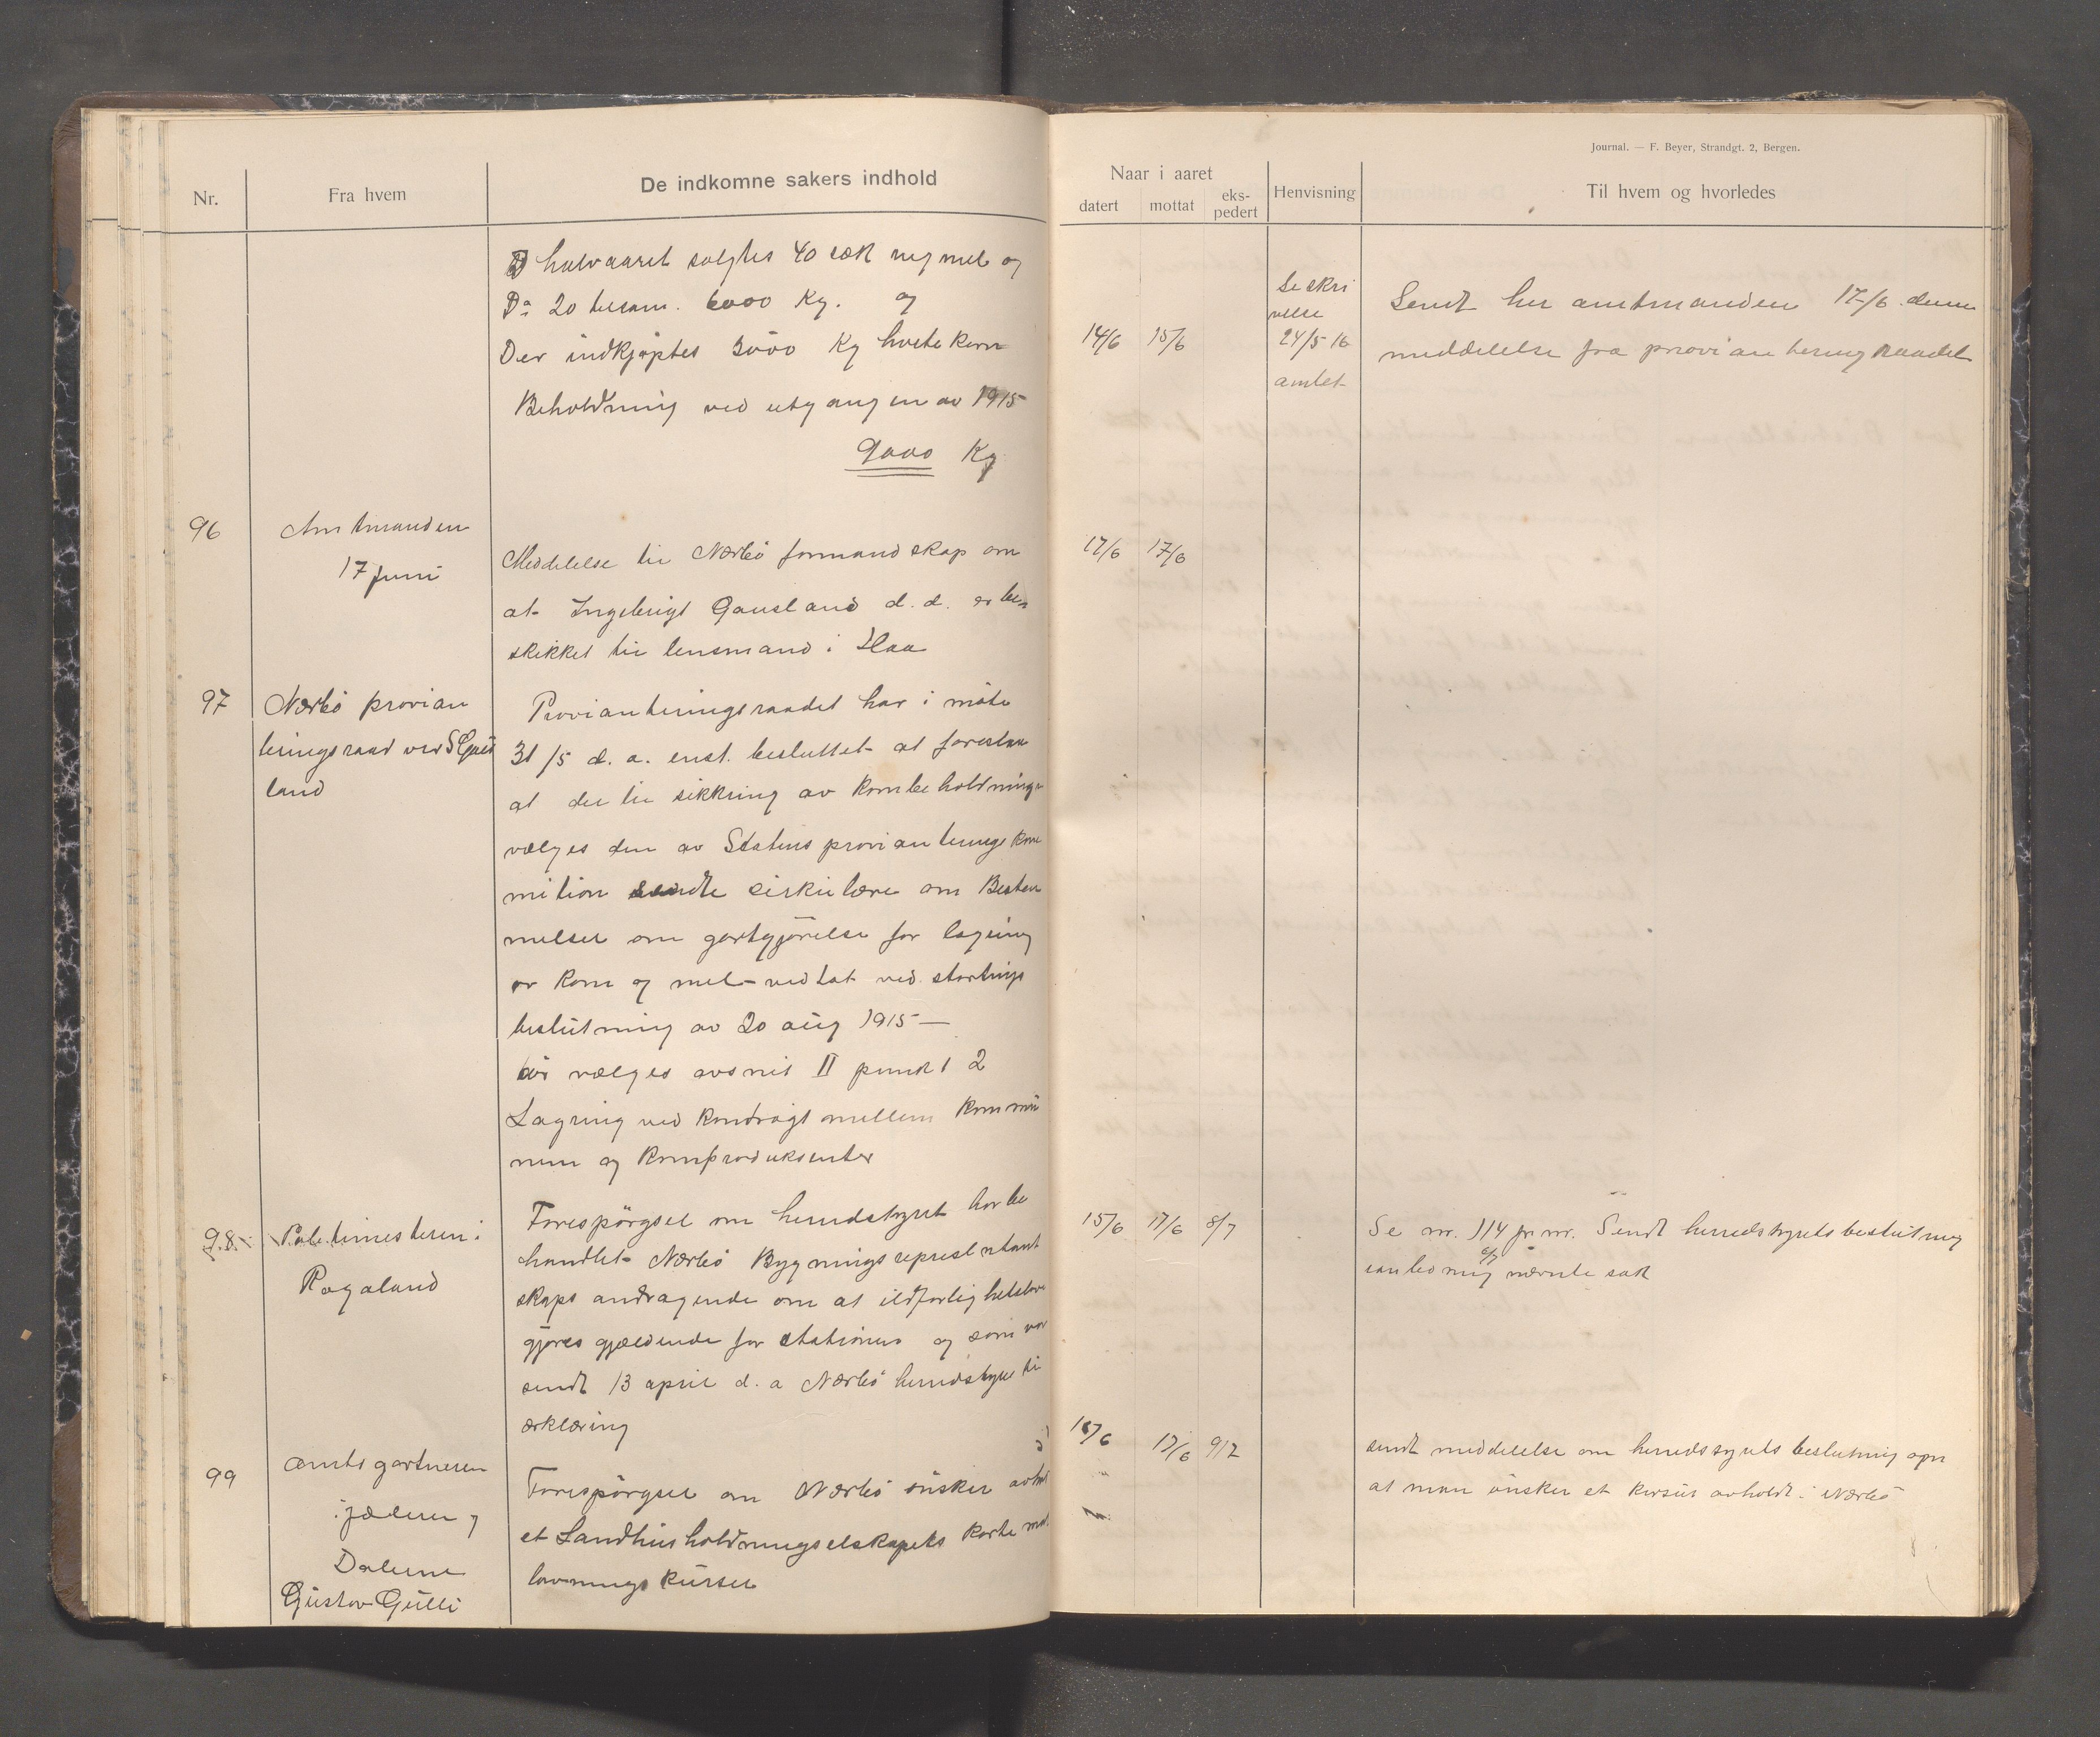 Journal. — F. Beyer, Strandgt. 2, Bergen.
Nr.
Fra hvem
De indkomne sakers indhold
Naar i aaret
datert
mottat
eks-
pedert
Henvisning
Til hvem og hvorledes
halvaaret solgtes 40 sæk rugmel og
Do 20 tilsam. 6000 Kg. og
Der indkjøptes 3000 Kg hvetekorn
Beholdning ved utgangen av 1915
9000 Kg
14/6 15/6
Se skri
velse
24/5 16
amtet
Sendt her amtmanden 17/6 denne
meddelelse fra provianteringsraadet
96
Amtmanden
17 juni
Meddelelse til Nærbö formandskap om
at Ingebrigt Gausland d.d. er be-
skikket til lensmand i Haa
17/6 17/6
97
Nærbö provian
teringsraad ved S
land
Provianteringsraadet har i möte
31/5 d. a. enst. besluttet at foreslaa
at der til sikkring av kornbeholdninge
vælges den av Statens provianterings kom
mition sendte cirkulære om Bestem
melser om godtgjörelse for lagring
av korn og mel vedtat ved stortings
beslutning av 20 aug 1915 —
vælges avsnit II punkt 2
Lagring ved kontragt mellem kommu
nen og kornprodusenter
98
Politimesteren i
Rogaland
Forespörgsel om herredstyret har be
handlet Nærbö Bygningsrepresentant
skaps andragende om at ildfarlighetslove
gjöres gjældende for stationen og som var
sendt 13 april d. a Nærbö herredstyre til
erklæring
15/6 17/6 8/7
Se nr. 114 Sendt herredstyrets beslutning
nævnte sak
99
Amtsgartneren
i jæderen og
Dalene
Gustav Gulli
Forespörgsel om Nærbö önsker avholdt
et Landhusholdningselskapets korte mat
lavnings kurser
16/6
17/6 9/7
sendt meddelelse om herredsstyrets beslutning
at man önsker et kursus avholdt i Nærbö